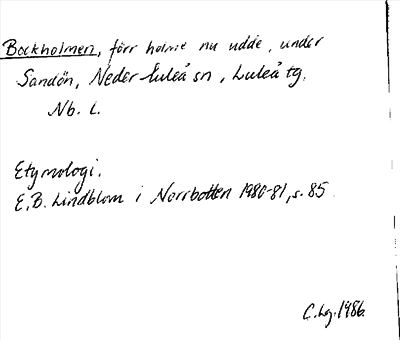 Bockholmen, förr holme nu udde, under
Sandön, Neder-Luleå sn, Luleå tg.
Nb. L.
Etymologi.
E.B. Lindblom i Norrbotten 1980-81, s. 85.
C.Lg. 1986.